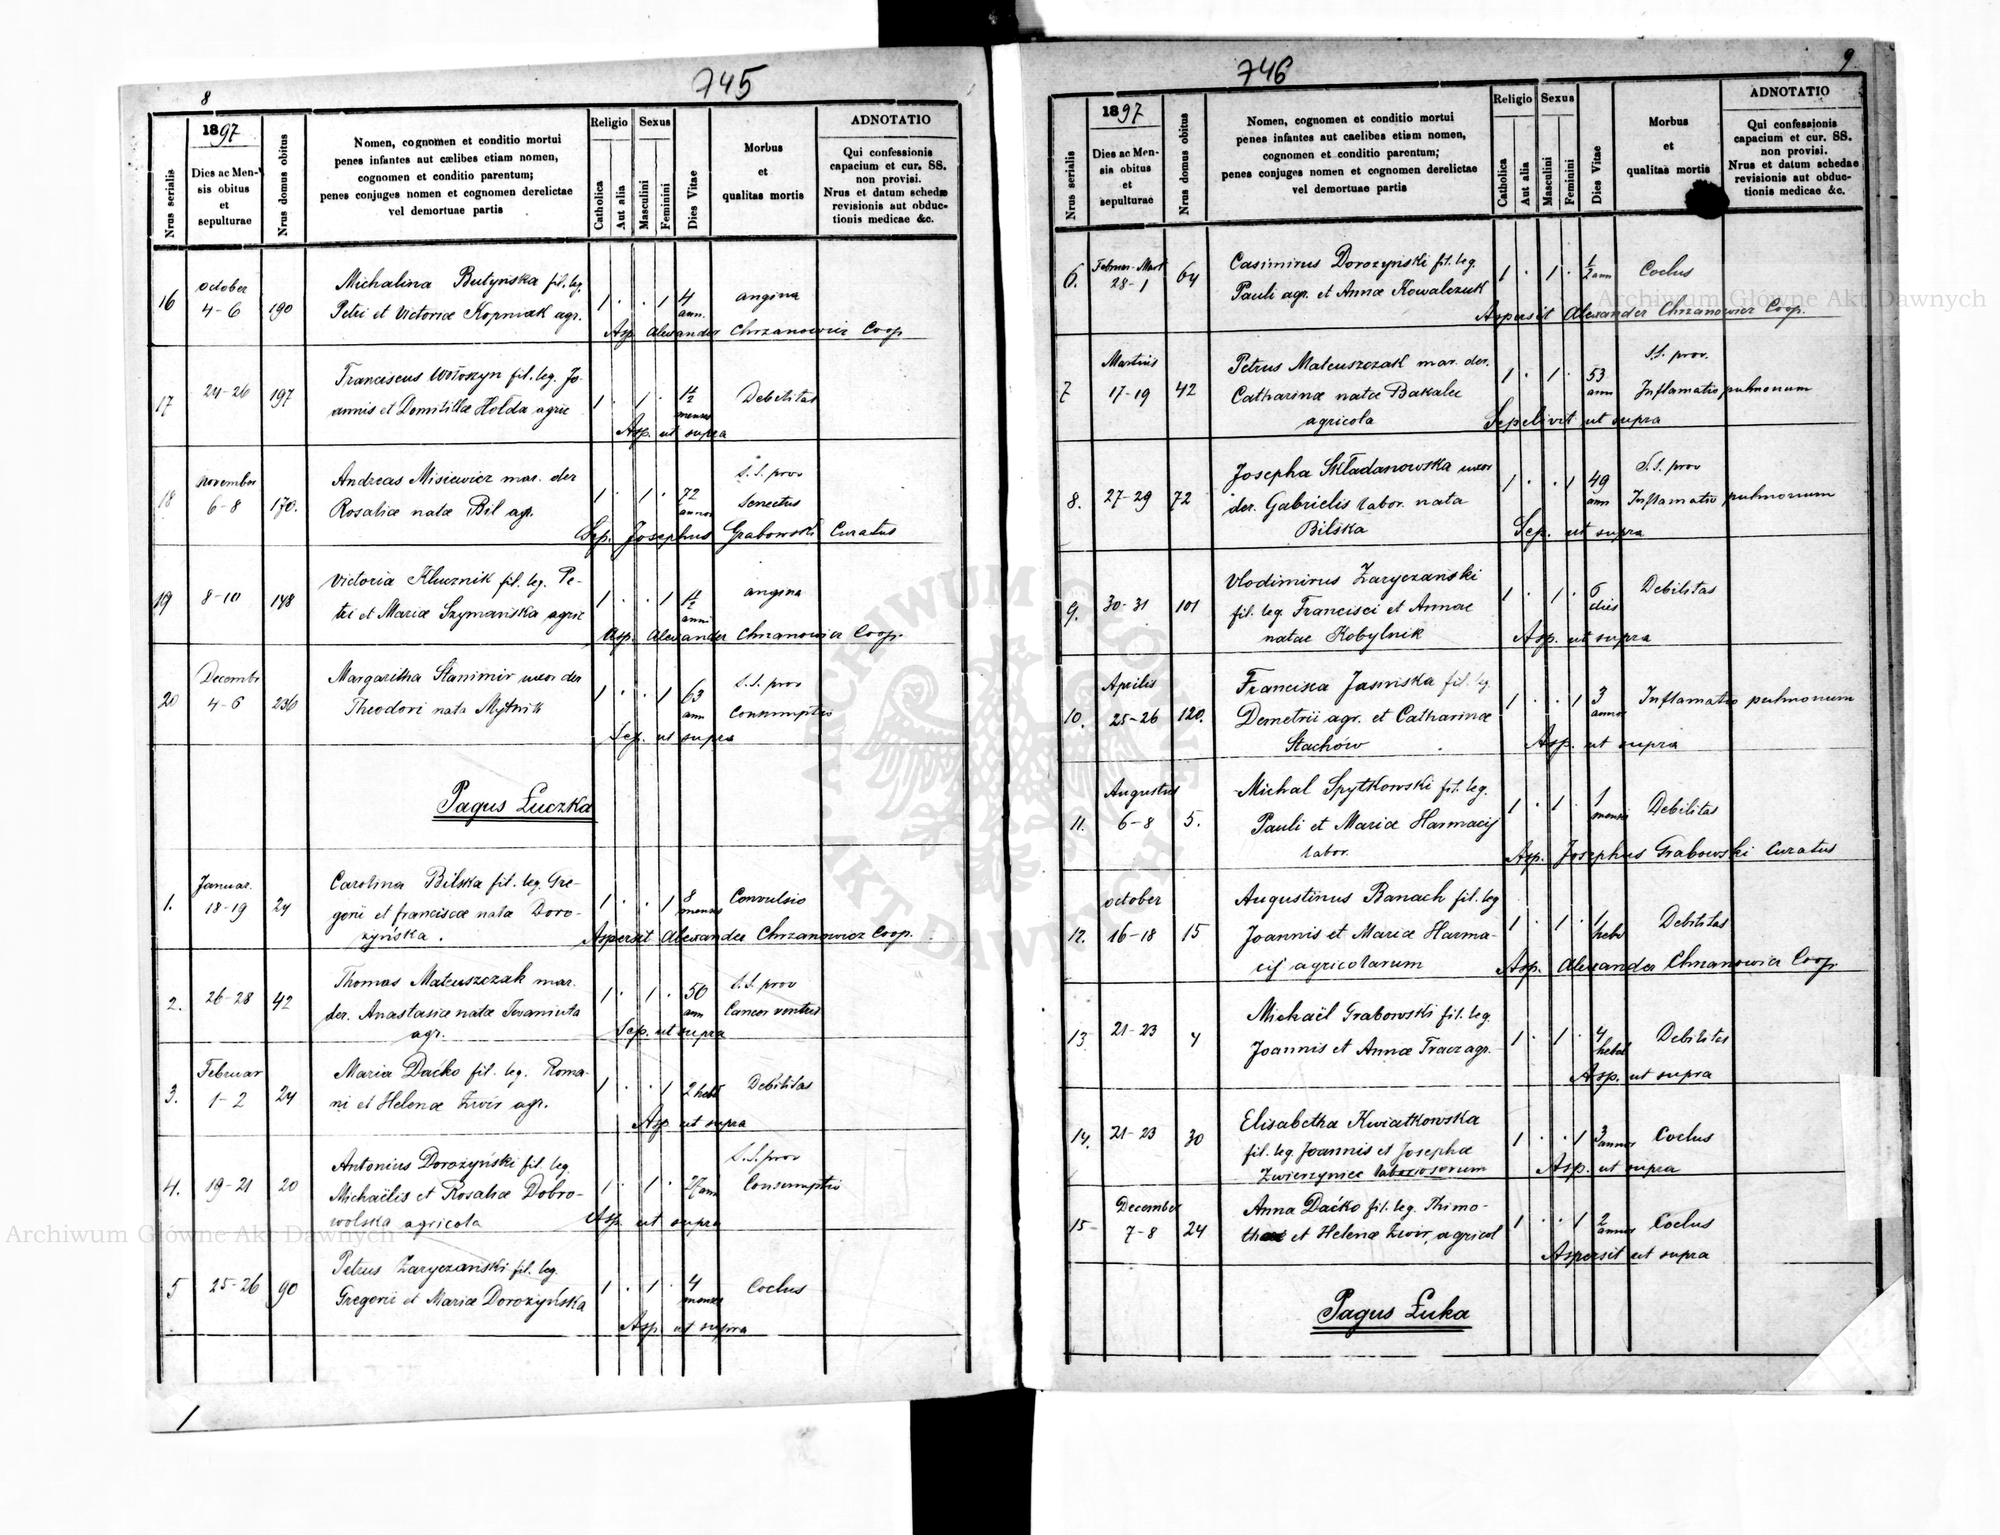 745
8
1897
Nrus serialis
Dies ac Mensis obitus et sepulturae
Nrus domus obitus
Nomen, cognomen et conditio mortui
penes infantes aut cælibes etiam nomen,
cognomen et conditio parentum;
penes conjuges nomen et cognomen derelictae
vel demortuae partis
Religio
Catholica
Aut alia
Sexus
Masculini
Feminini
Dies Vitae
Morbus
et
qualitas mortis
ADNOTATIO
Qui confessionis
capacium et cur. SS.
non provisi.
Nrus et datum schedæ
revisionis aut obduc-
tionis medicae &c.
October
Michalina Butyńska fil. leg.
16 4-6 190 Petri et Victoriæ Kopniak agr. 1 . . 1 4 ann. angina
Asp. Alexander Chrzanowicz Coop
Franciscus Wołoszyn fil. leg. Jo-
17 24-26 197 annis et Domitillæ Hołda agric 1 . 1 . 1½ menses Debilitas
Asp. ut supra
November
Andreas Misiewicz mar. der S.S. prov
18 6-8 170. Rosaliæ natæ Bil agr. 1 . 1 . 72 annos Senectus
Sep. Josephus Grabowski Curatus
Victoria Klucznik fil. leg. Pe-
19 8-10 148 tri et Mariæ Szymańska agric 1 . . 1 1½ anni angina
Asp. Alexander Chrzanowicz Coop.
Decembr
Margaritha Stanimir uxor der S.S. prov
20 4-6 236 Theodori nata Mytnik 1 . . 1 63 ann Consumptio
Sep. ut supra
Pagus Łuczka
Januar.
Carolina Bilska fil. leg. Gre-
1. 18-19 24 gorii et Franciscæ nata Doro- 1 . . 1 8 menses Convulsio
żyńska.
Aspersit Alexander Chrzanowicz Coop.
Thomas Mateuszczak mar. S.S. prov
2. 26-28 42 der. Anastasiæ natæ Iwaniuta 1 . 1 . 50 ann Cancer ventris
agr. Sep. ut supra
Februar
Maria Daćko fil. leg. Roma-
3. 1-2 24 ni et Helenæ Zwir agr. 1 . . 1 2 hebd Debilitas
Asp ut supra
Antonius Dorożyński fil. leg. S.S. prov
4. 19-21 20 Michaëlis et Rosaliæ Dobro- 1 . 1 . 27 ann Consumptio
wolska agricola Asp. ut supra
Petrus Zaryczański fil. leg.
5 25-26 90 Gregorii et Mariæ Dorożyńska 1 . 1 . 4 menses Coclus
Asp. ut supra
1
746
9
1897
Nrus serialis
Dies ac Mensis obitus et sepulturae
Nrus domus obitus
Nomen, cognomen et conditio mortui
penes infantes aut caelibes etiam nomen,
cognomen et conditio parentum;
penes conjuges nomen et cognomen derelictae
vel demortuae partis
Religio
Catholica
Aut alia
Sexus
Masculini
Feminini
Dies Vitae
Morbus
et
qualitas mortis
ADNOTATIO
Qui confessionis
capacium et cur. SS.
non provisi.
Nrus et datum schedae
revisionis aut obduc-
tionis medicae &c.
Februar-Mart
Casimirus Dorożyński fil. leg.
6. 28-1 64 Pauli agr. et Annæ Kowalczuk 1 . 1 . ½ ann Coclus
Aspersit Alexander Chrzanowicz Coop.
Martius
Petrus Mateuszczak mar. der. S.S. prov.
7 17-19 42 Catharinæ natæ Bakalec 1 . 1 . 53 ann Inflamatio pulmonum
agricola Sepelivit ut supra
Josepha Składanowska uxor S.S. prov
8. 27-29 72 der. Gabrielis labor. nata 1 . . 1 49 ann Inflamatio pulmonum
Bilska Sep. ut supra
Vlodimirus Zaryczański
9. 30-31 101 fil. leg. Francisci et Annae 1 . 1 . 6 dies Debilitas
natae Kobylnik Asp. ut supra
Aprilis
Francisca Jasińska fil. lg.
10. 25-26 120. Demetrii agr. et Catharinæ 1 . . 1 3 annos Inflamatio pulmonum
Stachów Asp. ut supra
Augustus
Michal Spytkowski fil. leg.
11. 6-8 5. Pauli et Mariæ Harmacij 1 . 1 . 1 mensis Debilitas
labor. Asp. Josephus Grabowski Curatus
October
Augustinus Banach fil. leg
12. 16-18 15 Joannis et Mariæ Harma- 1 . 1 . 1 hebd Debilitas
cij agricolarum Asp. Alexander Chrzanowicz Coop.
Michaël Grabowski fil. leg.
13. 21-23 4 Joannis et Annæ Tracz agr. 1 . 1 . 4 hebd Debilitas
Asp. ut supra
Elisabetha Kwiatkowska
14. 21-23 30 fil. leg. Joannis et Josephæ 1 . . 1 3 annos Coclus
Zwierzyniec laboriosorum Asp. ut supra
December
Anna Daćko fil. leg. Thimo-
15 7-8 24 et Helenæ Zwir, agricol 1 . . 1 2 annos Coclus
Aspersit ut supra
Pagus Łuka
Archiwum Główne Akt Dawnych
Archiwum Główne Akt Dawnych
ARCHIWUM GŁÓWNE AKT DAWNYCH